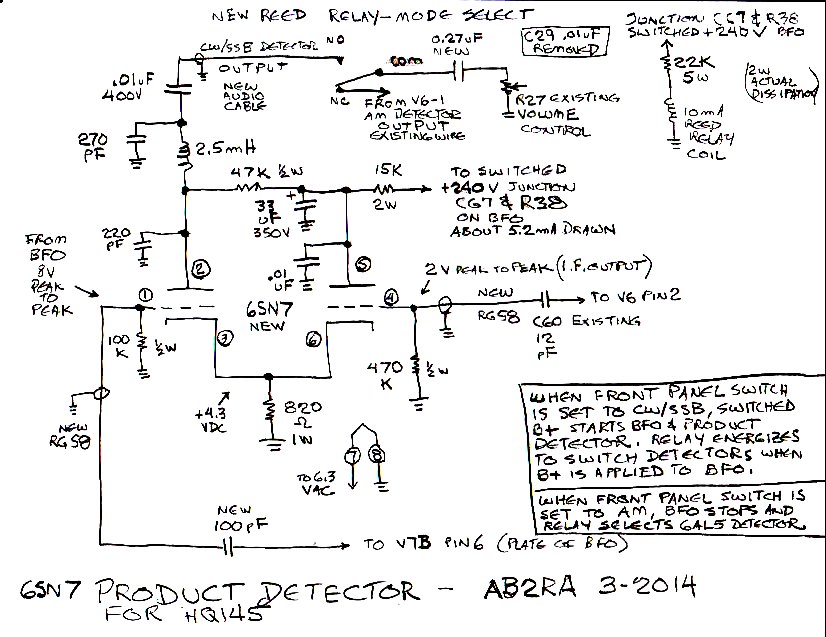 NEW REED RELAY-MODE SELECT
JUNCTION C67 & R38
SWITCHED +240V BFO
CW/SSB DETECTOR
OUTPUT
NEW
AUDIO
CABLE
NO
COM
NC
0.27uF
NEW
C29 .01uF
REMOVED
22K
5W
(2W
ACTUAL
DISSIPATION)
10mA
REED
RELAY
COIL
.01uF
400V
FROM V6-1
AM DETECTOR
OUTPUT
EXISTING WIRE
R27 EXISTING
VOLUME
CONTROL
270
PF
2.5mH
47K ½W
15K
2W
TO SWITCHED
+240V JUNCTION
C67 & R38
ON BFO
ABOUT 5.2mA DRAWN
+
33
uF
350V
220
PF
.01
uF
FROM
BFO
8V
PEAK
TO
PEAK
2
5
2V PEAK TO PEAK (I.F. OUTPUT)
1
6SN7
NEW
4
NEW
RG58
C60 EXISTING
12
pF
TO V6 PIN2
100
K
½W
3
6
470
K
½W
NEW
RG58
+4.3
VDC
820
Ω
1W
7
8
TO 6.3
VAC
WHEN FRONT PANEL SWITCH
IS SET TO CW/SSB, SWITCHED
B+ STARTS BFO & PRODUCT
DETECTOR. RELAY ENERGIZES
TO SWITCH DETECTORS WHEN
B+ IS APPLIED TO BFO.
WHEN FRONT PANEL SWITCH IS
SET TO AM, BFO STOPS AND
RELAY SELECTS 6AL5 DETECTOR
NEW
100pF
TO V7B PIN6 (PLATE OF BFO)
6SN7 PRODUCT DETECTOR - AB2RA 3-2014
FOR HQ145